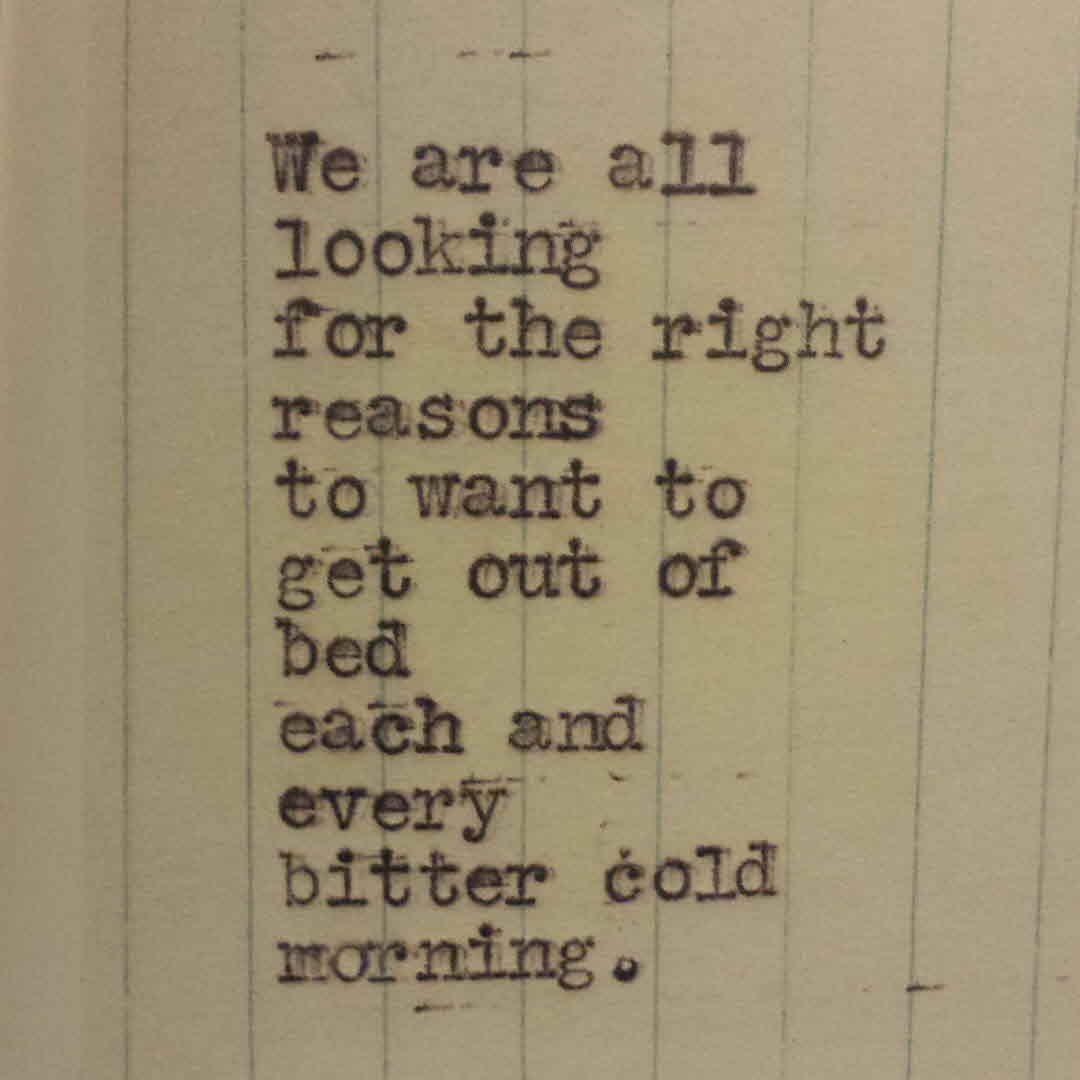 We are all
looking
for the right
reasons
to want to
get out of
bed
each and
every
bitter cold
morning.